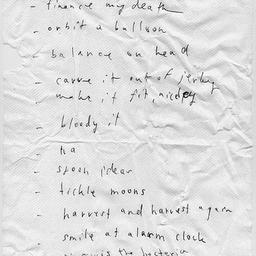 - finance my death
- orbit a balloon
- balance on head
- carve it out of jerky
make it fit, nicely
- bloody it
- ha
- steal ideas
- tickle moons
- harvest and harvest again
- smile at alarm clock
bacteria